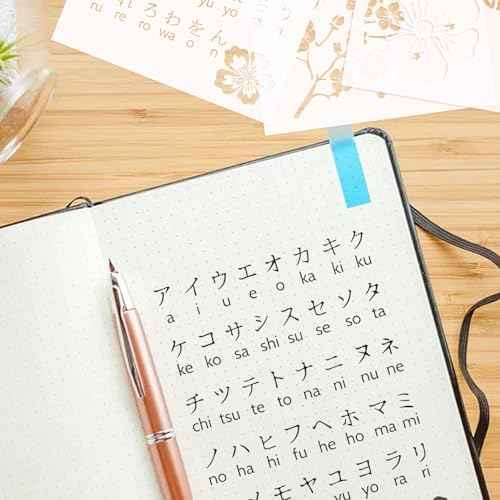 yu yo
れ ろ わ を ん
ru re ro wa o n
ア イ ウ エ オ カ キ ク
a i u e o ka ki ku
ケ コ サ シ ス セ ソ タ
ke ko sa shi su se so ta
チ ツ テ ト ナ ニ ヌ ネ
chi tsu te to na ni nu ne
ノ ハ ヒ フ ヘ ホ マ ミ
no ha hi fu he ho ma mi
メ モ ヤ ユ ヨ ラ リ
yu yo ra ri